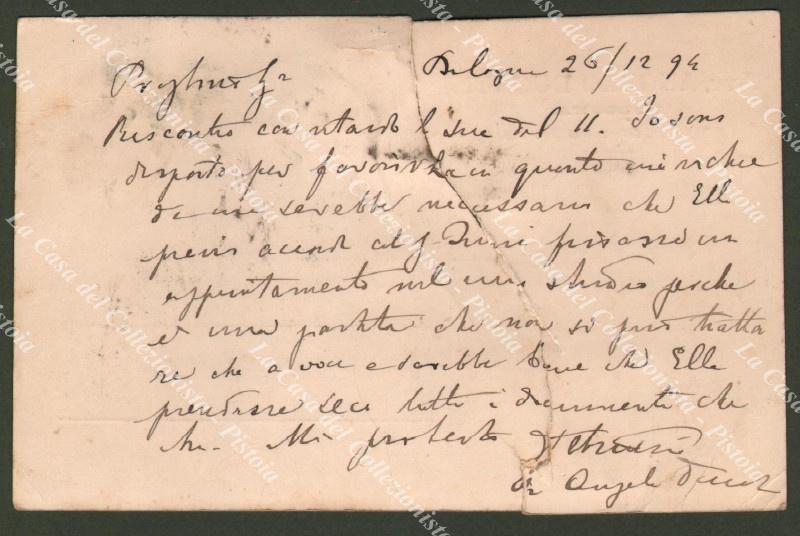 Bologna 26/12 94
Riscontro con ritardo la sua del 11. Io sono
disposto per favorirla in quanto mi richie
de ma sarebbe necessario che Ella
previo accordo col fissasse un
appuntamento nel mio studio perche
è una partita che non si può tratta
re che a voce e sarebbe bene che Ella
prendesse seco tutti i documenti che
ha. Mi protesto
Angelo
La Casa del Collezionista - Pistoia